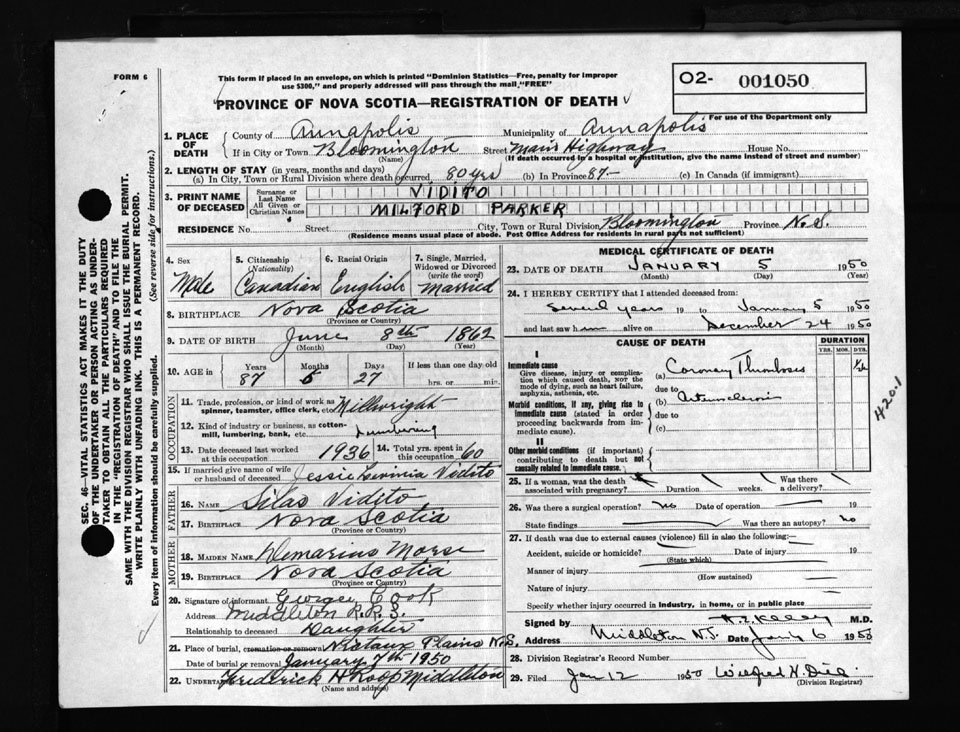 FORM 6
This form if placed in an envelope, on which is printed "Dominion Statistics—Free, penalty for improper
use $300," and properly addressed will pass through the mail "FREE"
O2- 001050
For use of the Department only
PROVINCE OF NOVA SCOTIA—REGISTRATION OF DEATH
1. PLACE OF DEATH
County of Annapolis Municipality of Annapolis
If in City or Town Bloomington Street Main Highway House No.
(Name) (If death occurred in a hospital or institution, give the name instead of street and number)
2. LENGTH OF STAY (in years, months and days)
(a) In City, Town or Rural Division where death occurred 80 yrs (b) In Province 87 (c) In Canada (if immigrant)
3. PRINT NAME OF DECEASED
Surname or Last Name VIDITO
All Given or Christian Names MILFORD PARKER
RESIDENCE No. Street City, Town or Rural Division Bloomington Province N.S.
(Residence means usual place of abode. Post Office Address for residents in rural parts not sufficient)
4. Sex 5. Citizenship (Nationality) 6. Racial Origin 7. Single, Married, Widowed or Divorced (write the word)
Male Canadian English Married
8. BIRTHPLACE Nova Scotia
(Province or Country)
9. DATE OF BIRTH June 8th 1862
(Month) (Day) (Year)
10. AGE in Years Months Days If less than one day old
87 27 hrs. or min.
OCCUPATION
11. Trade, profession, or kind of work as spinner, teamster, office clerk, etc. Millwright
12. Kind of industry or business, as cotton-mill, lumbering, bank, etc. Lumbering
13. Date deceased last worked at this occupation 1936
14. Total yrs. spent in this occupation 60
15. If married give name of wife or husband of deceased Jessie Vidito
FATHER
16. Name Silas Vidito
17. Birthplace Nova Scotia
(Province or Country)
MOTHER
18. Maiden Name Morse
19. Birthplace Nova Scotia
(Province or Country)
20. Signature of informant George Cook
Address Middleton
Relationship to deceased Daughter
21. Place of burial, cremation or removal Nictaux Plains N.S.
Date of burial or removal January 7th 1950
22. Undertaker Frederick H Roop Middleton
(Name and address)
MEDICAL CERTIFICATE OF DEATH
23. DATE OF DEATH JANUARY 5 1950
(Month) (Day) (Year)
24. I HEREBY CERTIFY that I attended deceased from:
Several years 19 to January 5 1950
and last saw him alive on December 24 1950
CAUSE OF DEATH
DURATION
YRS. MOS. DYS.
I
Immediate cause
Give disease, injury or complication which caused death, not the mode of dying, such as heart failure, asphyxia, asthenia, etc.
(a) Coronary Thrombosis
due to
Morbid conditions, if any, giving rise to immediate cause (stated in order proceeding backwards from immediate cause).
(b) Arteriosclerosis
due to
(c)
II
Other morbid conditions (if important) contributing to death but not causally related to immediate cause.
420.1
25. If a woman, was the death associated with pregnancy? Duration weeks. Was there a delivery?
26. Was there a surgical operation? no Date of operation 19
State findings Was there an autopsy? no
27. If death was due to external causes (violence) fill in also the following:—
Accident, suicide or homicide? Date of injury 19
(State which)
Manner of injury
(How sustained)
Nature of injury
Specify whether injury occurred in industry, in home, or in public place
Signed by M.D.
Address Middleton N.S. Date Jan 6 1950
28. Division Registrar's Record Number
29. Filed Jan 12 1950 Wilfred H.
(Division Registrar)
SEC. 46—VITAL STATISTICS ACT MAKES IT THE DUTY
OF THE UNDERTAKER OR PERSON ACTING AS UNDER-
TAKER TO OBTAIN ALL THE PARTICULARS REQUIRED
IN THE "REGISTRATION OF DEATH" AND TO FILE THE
SAME WITH THE DIVISION REGISTRAR WHO SHALL ISSUE THE BURIAL PERMIT.
WRITE PLAINLY WITH UNFADING INK. THIS IS A PERMANENT RECORD.
Every item of information should be carefully supplied. (See reverse side for instructions.)